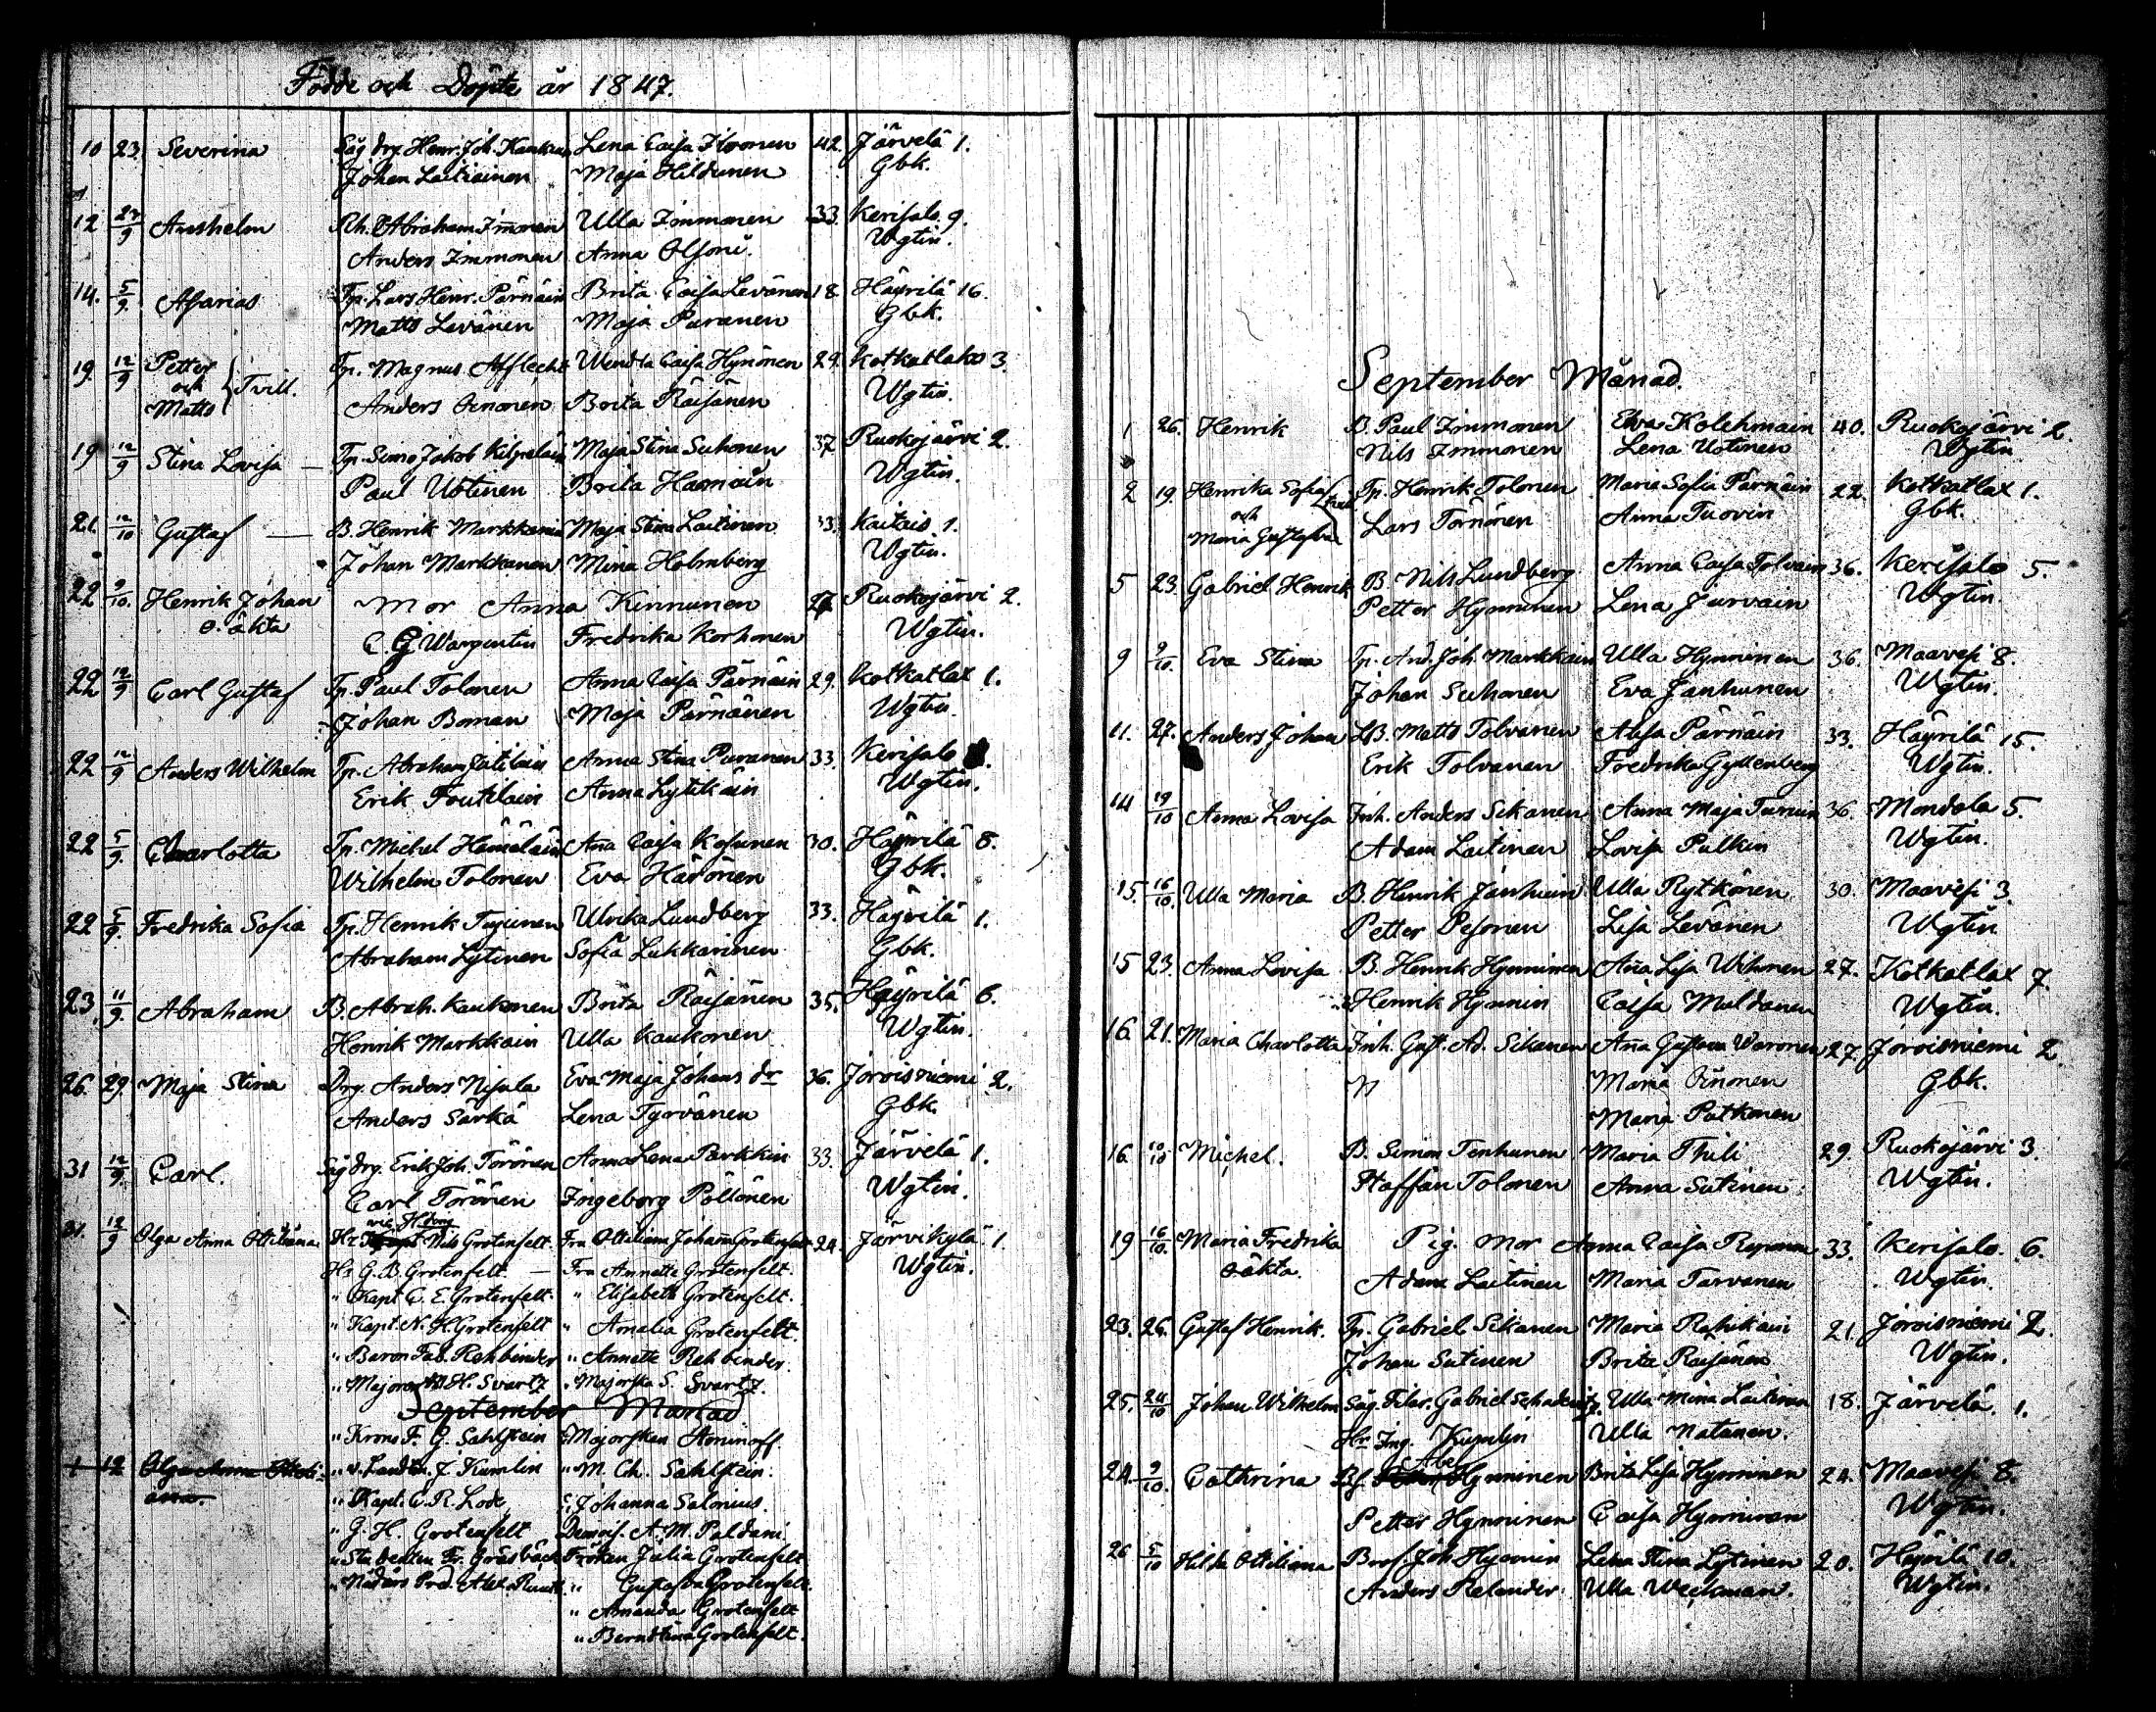 Födde och Döpte år 1847.
10 23. Severina Såg drg. Henr. Joh. Kaukan Lena Caisa Ilvonen 42. Järvelä 1.
Johan Laitiainen Maja Hildunen Gbk.
12 27/9 Anshelm Abraham Immonen Ulla Immonen 33. Kerisalo 9.
Anders Immonen Anna Olsoni. Wgtin.
14. 5/9. Asarias Tp. Lars Henr. Pärnäin Brita Caisa Levänen 18 Häyrilä 16.
Matts Levänen Maja Puranen Gbk.
19. 12/9 Petter och Matts Tvill. Tp. Magnus Afflecht Wendla Caisa Hynönen 29. Kotkatlaks 3.
Anders Oinonen Brita Räisänen Wgtin.
19 12/9 Stina Lovisa — Tp. Simo Jakob Kilpeläin Maja Stina Suhonen 37 Ruokojärvi 2.
Paul Uotinen Brita Hamäin Wgtin.
21. 12/10 Gustaf — B. Henrik Markkanin Maja Stina Laitinen 33. Kaitais 1.
Johan Markkanen Mina Holmberg Wgtin.
22 9/10. Henrik Johan Mor Anna Kinnunen 27 Ruokojärvi 2.
o. äkta C. G Wargentin Fredrika Korhonen Wgtin.
22 12/9 Carl Gustaf Tp. Paul Tolonen Anna Caisa Pärnäin 29. Kotkatlax 1.
Johan Boman Maja Pärnänen Wgtin.
22 12/9 Anders Wilhelm Tp. Abraham Stina Puranen 33. Kerisalo
Erik Poutilain Anna Lytikäin Wgtin.
22 5/9. Charlotta Tp. Michel Hämäläin Ana Caisa Kosunen 30. Häyrilä 8.
Wilhelm Tolonen Eva Härönen Gbk.
22 5/9. Fredrika Sofia Tp. Henrik Ulrika Lundberg 33. Häyrilä 1.
Abraham Lytinen Sofia Lukkarinen Gbk.
23. 11/9. Abraham B. Abrah. Kaukonen Brita Räisänen 35. Häyrilä 6.
Henrik Markkain Ulla Kaukonen Wgtin.
26. 29. Maja Stina Drg. Anders Nisula Eva Maja Johans dr 36. Joroisniemi 2.
Anders Särkä Lena Tyrvänen Gbk.
31 12/9. Carl. Såg drg. Erik Joh. Törönen Anna Lena Parkkin 33. Järvelä 1.
Carl Törönen Ingeborg Pöllönen Wgtin.
31. 12/9 Olga Anna Ottiliana Hr Nils Grotenfelt. Fru Ottiliana Johana Grotenfelt 24. Järvikylä 1.
Hr G. B. Grotenfelt. — Fru Annette Grotenfelt. Wgtin.
" Kapt. C. E. Grotenfelt. " Elisabeth Grotenfelt.
" Kapt. N. H. Grotenfelt " Amalia Grotenfelt.
" Baron Fab. Rehbinder " Annette Rehbinder.
" Majoren H. Svartz " Majorska S. Svartz.
September Månad
" Krono F. G. Sahlstein Majorskan Aminoff
1 12 Olga Anna Ottiliana. " v. Landtm. J. Kumlin " M. Ch. Sahlstein.
" Kapt. C. R. Lode " Johanna Salonius.
" G. H. Grotenfelt Demois. A. M. Paldani.
" Studenten Fr. Gräsbäck Fröken Julia Grotenfelt
" Nådårs Pred. " Gustafva Grotenfelt.
" Amanda Grotenfelt
" Berndtina Grotenfelt.
September Månad.
1 26. Henrik B. Paul Immonen Eva Kolehmain 40. Ruokojärvi 2.
Nils Immonen Lena Uotinen Wgtin
2 19. Henrika Sofia Tp. Henrik Tolonen Maria Sofia Pärnäin 22. Kotkatlax 1.
och Maria Gustafva Lars Törnönen Anna Tuovin Gbk.
5 23. Gabriel Henrik B. Nils Lundberg Anna Caisa Tolvain 36. Kerisalo 5.
Petter Hynninen Lena Jurvain Wgtin.
9 9/10 Eva Stina Tp. And. Joh. Markkain Ulla Hynninen 36. Maavesi 8.
Johan Suhonen Eva Janhunen Wgtin.
11. 27. Anders Johan LB. Matts Tolvanen Alisa Pärnäin 33. Häyrilä 15.
Erik Tolvanen Fredrika Gyllenberg Wgtin.
14 19/10 Anna Lovisa Inh. Anders Sikanen Anna Maja Turun 36. Mondola 5.
Adam Laitinen Lovisa Pulkin Wgtin.
15. 16/10. Ulla Maria B. Henrik Janhuin Ulla Rytkönen 30. Maavesi 3.
Petter Pesonen Lisa Levänen Wgtin
15 23. Anna Lovisa B. Henrik Hynninen Aña Lisa Wihinen 27. Kotkatlax 7.
Henrik Hynnin Caisa Muldanen Wgtin.
16 21. Maria Charlotta Inh. Gust. Ad. Sikanen Aña Gustava Waronen 27. Joroisniemi 2.
N Maria Oinonen Gbk.
Maria Putkonen
16. 10/10 Michel. B. Simon Tenhunen Maria Thili 29. Ruokojärvi 3.
Staffan Tolonen Anna Sutinen Wgtin.
19 16/10. Maria Fredrika Pig. Mor Anna Caisa 33. Kerisalo. 6.
oäkta. Adam Laitinen Maria Tarvanen Wgtin.
23. 26. Gustaf Henrik. Tp. Gabriel Sikanen Maria 21. Joroisniemi 2.
Johan Sutinen Brita Räisänen Wgtin.
25. 24/10 Johan Wilhelm Såg. Filar. Gabriel Ulla Mina Laitinen 18. Järvelä. 1.
Hr Ing. Kumlin Ulla Natanen.
24. 9/10. Cathrina Abel Hynninen Brita Lisa Hynninen 24. Maavesi 8.
Petter Hynninen Caisa Hynninen Wgtin.
26 5/10 Hilda Ottiliana Joh. Hynnin Lena Stina Lytinen 20. Häyrilä 10.
Anders Relander Ulla Weckman. Wgtin.